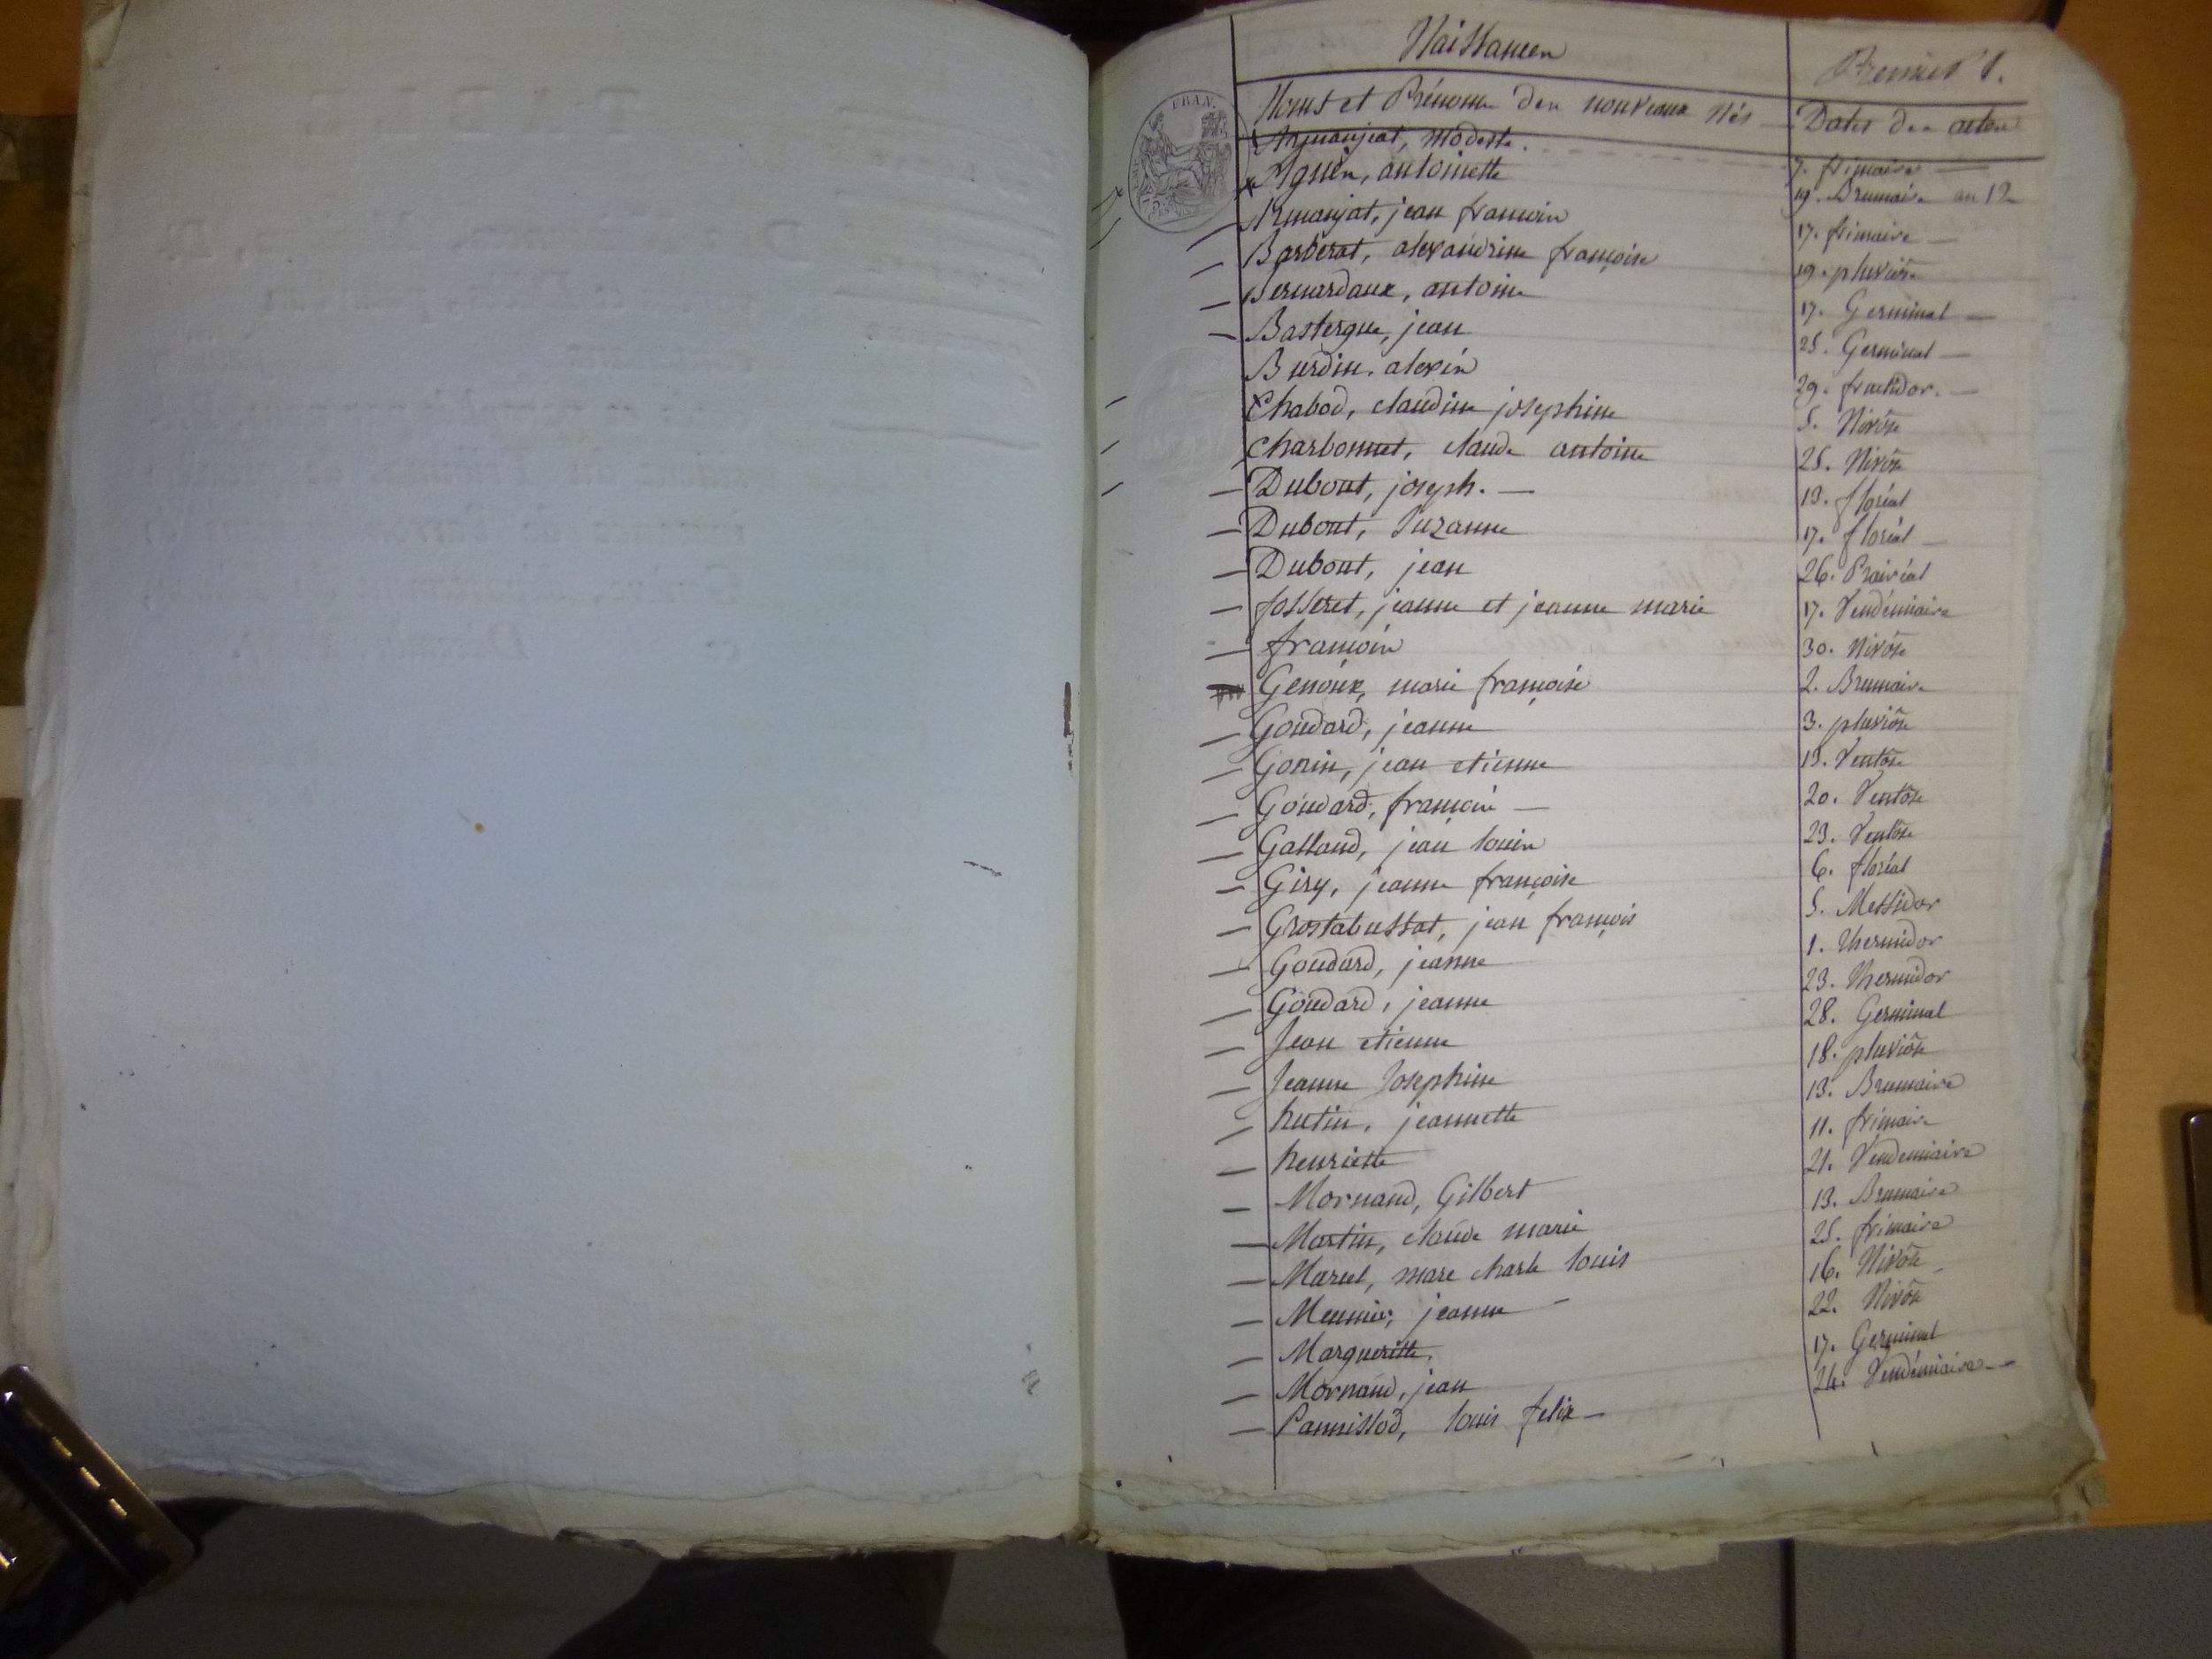 Naissances
Premier 1.
Noms et Prénoms des nouveaux Nés
Dates des actes
Armanjeat, modeste. 7. frimaire
Agnès, antoinette 19. Brumaire an 12
Armanjat, jean francois 17. frimaire
Barberat, alexandrine françoise 19. pluviôse
Bernardaux, antoine 17. Germinal
Bastergue, jean 25. Germinal
Burdin, alexis 29. fructidor.
Chabod, claudine josephine 5. Nivôse
Charbonnet, claude antoine 25. Nivôse
Dubout, joseph. 13. floréal
Dubout, Suzanne 17. floréal
Dubout, jean 26. Prairial
fosseret, jeanne et jeanne marie 17. Vendémiaire
françois 30. Nivôse
Genoux, marie françoise 2. Brumaire
Goudard, jeanne 3. pluviôse
Gonin, jean etienne 13. Ventôse
Goudard, françois 20. Ventôse
Galland, jean louis 23. Ventôse
Giry, jeanne françoise 6. floréal
Grostabussat, jean françois 5. Messidor
Goudard, jeanne 1. thermidor
Goudard, jeanne 23. thermidor
Jean etienne 28. Germinal
Jeanne Josephine 18. pluviôse
hutin, jeannette 13. Brumaire
henriette 11. frimaire
Mornand, Gilbert 21. Vendemiaire
Martin, claude marie 13. Brumaire
Marcel, marc charle louis 25. frimaire
Meunier, jeanne 16. Nivôse
Margueritte. 22. Nivôse
Mornand, jean 17. Germinal
Pannissod, louis felix 24. Vendémiaire
FRAN.